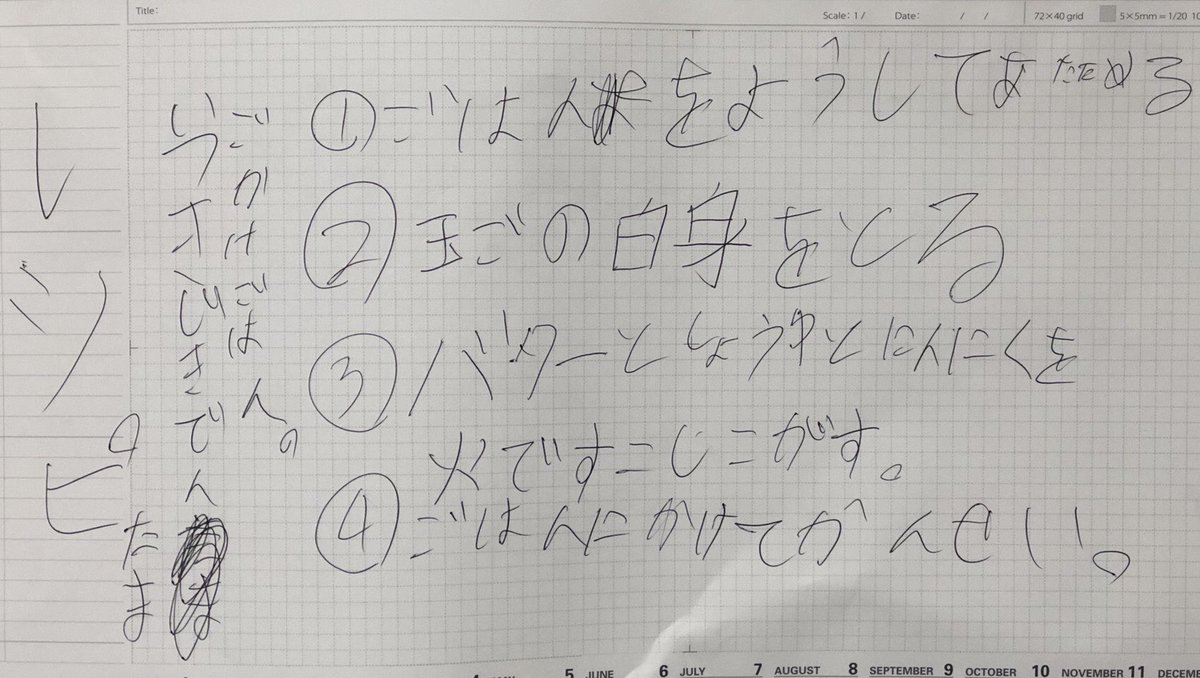 Title:
Scale: 1 / Date: / / 72×40 grid 5×5mm=1/20 10
レシピ
たま
ごかけごはん。
①ごはんをようしてあたためる
②玉ごの白身をとる
③バターとしょうゆとにんにくを
火ですこしこがす。
④ごはんにかけてかんせい。
5 JUNE 6 JULY 7 AUGUST 8 SEPTEMBER 9 OCTOBER 10 NOVEMBER 11 DECEM